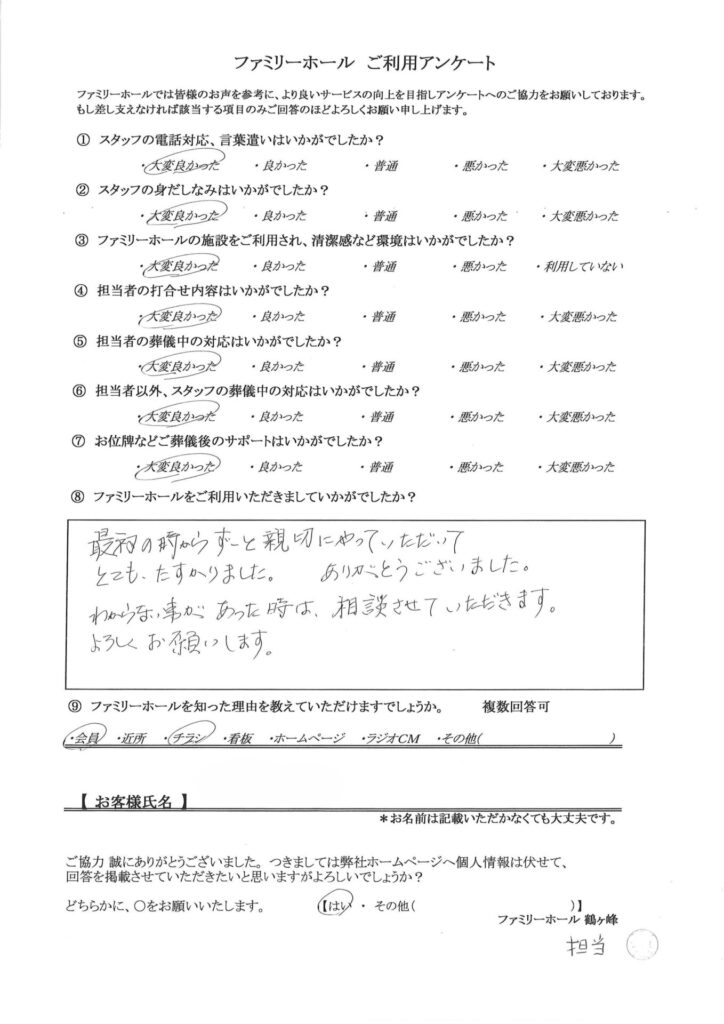 ファミリーホール　ご利用アンケート
ファミリーホールでは皆様のお声を参考に、より良いサービスの向上を目指しアンケートへのご協力をお願いしております。
もし差し支えなければ該当する項目のみご回答のほどよろしくお願い申し上げます。
① スタッフの電話対応、言葉遣いはいかがでしたか？
・大変良かった ・良かった ・普通 ・悪かった ・大変悪かった
② スタッフの身だしなみはいかがでしたか？
・大変良かった ・良かった ・普通 ・悪かった ・大変悪かった
③ ファミリーホールの施設をご利用され、清潔感など環境はいかがでしたか？
・大変良かった ・良かった ・普通 ・悪かった ・利用していない
④ 担当者の打合せ内容はいかがでしたか？
・大変良かった ・良かった ・普通 ・悪かった ・大変悪かった
⑤ 担当者の葬儀中の対応はいかがでしたか？
・大変良かった ・良かった ・普通 ・悪かった ・大変悪かった
⑥ 担当者以外、スタッフの葬儀中の対応はいかがでしたか？
・大変良かった ・良かった ・普通 ・悪かった ・大変悪かった
⑦ お位牌などご葬儀後のサポートはいかがでしたか？
・大変良かった ・良かった ・普通 ・悪かった ・大変悪かった
⑧ ファミリーホールをご利用いただきましていかがでしたか？
最初の時からずーと親切にやっていただいて
とても、たすかりました。　ありがとうございました。
わからない事があった時は、相談させていただきます。
よろしくお願いします。
⑨ ファミリーホールを知った理由を教えていただけますでしょうか。　複数回答可
・会員 ・近所 ・チラシ ・看板 ・ホームページ ・ラジオCM ・その他( )
【 お客様氏名 】
＊お名前は記載いただかなくても大丈夫です。
ご協力 誠にありがとうございました。つきましては弊社ホームページへ個人情報は伏せて、
回答を掲載させていただきたいと思いますがよろしいでしょうか？
どちらかに、〇をお願いいたします。 【はい ・ その他( )】
ファミリーホール 鶴ヶ峰
担当